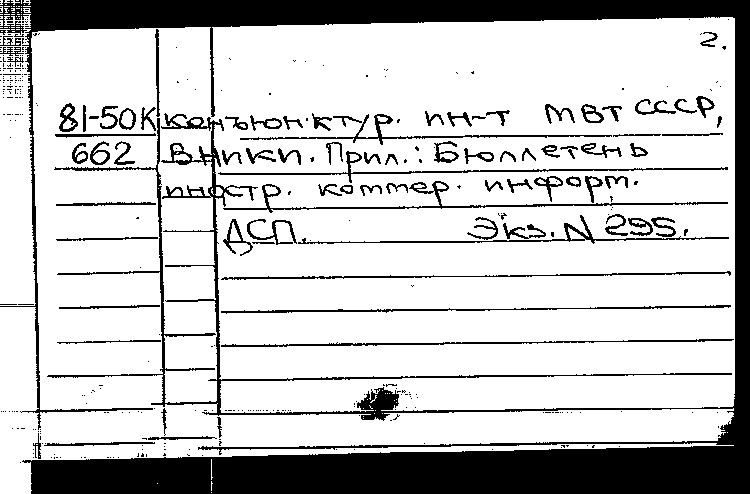 2.
81-50К конъюнктур. ин-т МВТ СССР,
662 ВНИКИ. Прил.: Бюллетень
иностр. коммер. информ.
ДСП. Экз. N 295.